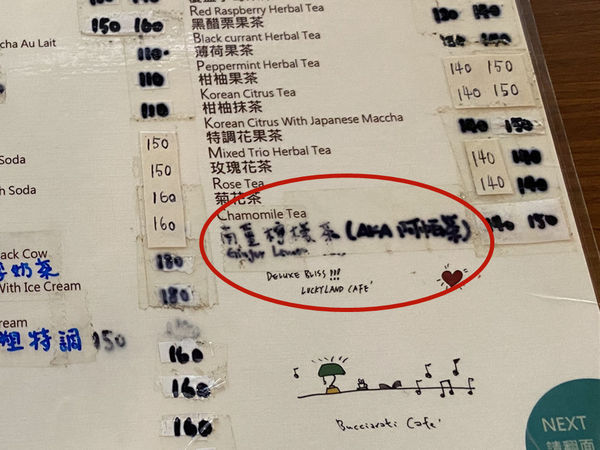 150 160
cha Au Lait
110
110
110
150
Soda
150
h Soda
160
160
ack Cow
180
奶茶
With Ice Cream
180
ream
塑特調 150
160
160
160
Red Raspberry Herbal Tea
140
黑醋栗果茶
Black currant Herbal Tea
薄荷果茶
Peppermint Herbal Tea 140 150
柑柚果茶
Korean Citrus Tea 140 150
柑柚抹茶
Korean Citrus With Japanese Maccha 140 150
特調花果茶
Mixed Trio Herbal Tea 140 140
玫瑰花茶
Rose Tea 140 140
菊花茶
Chamomile Tea
檸檬茶 (AKA 140 150
DELUXE BLISS!!!
LUCKYLAND CAFE'
Bucciarati Cafe'
NEXT
請翻面